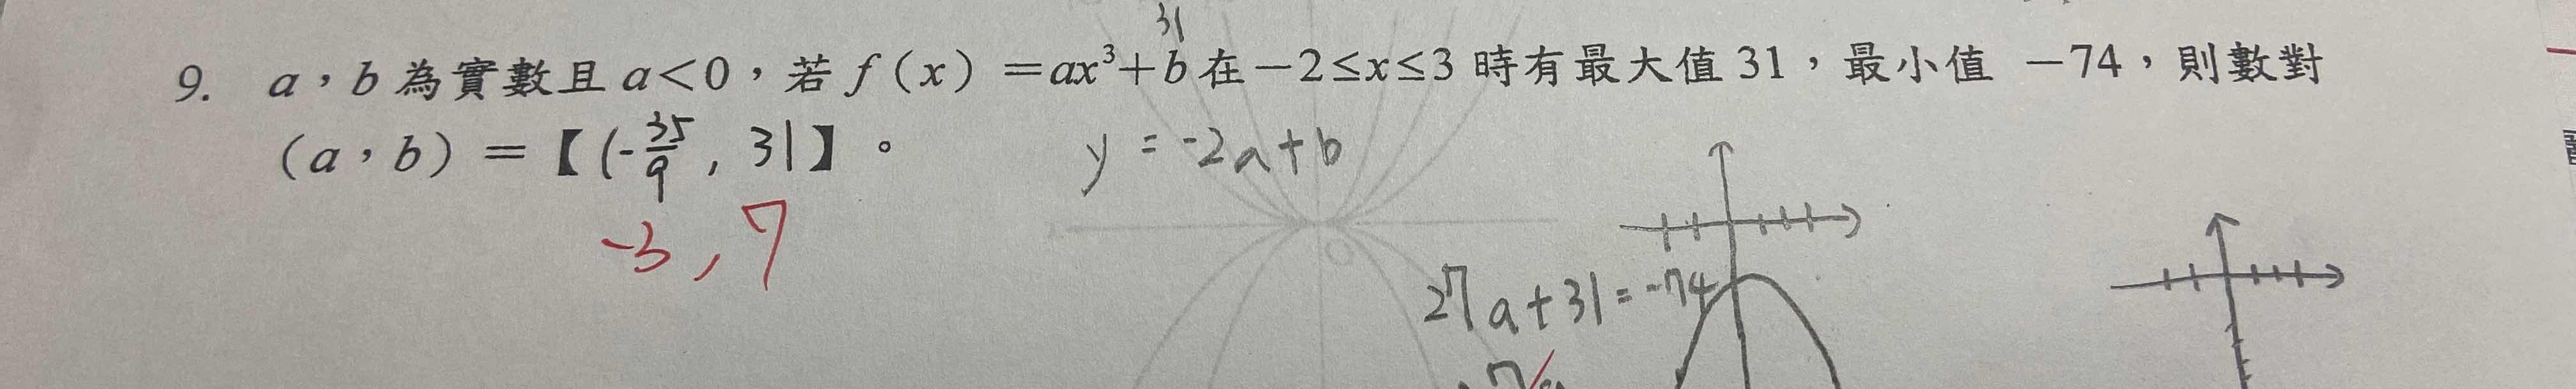 31
9. a，b 為實數且 a<0，若 f（x）=ax³+b 在 −2≤x≤3 時有最大值 31，最小值 −74，則數對
（a，b）=【(-35/9 , 31】。
y = -2a+b
-3 , 7
27a+31=-74